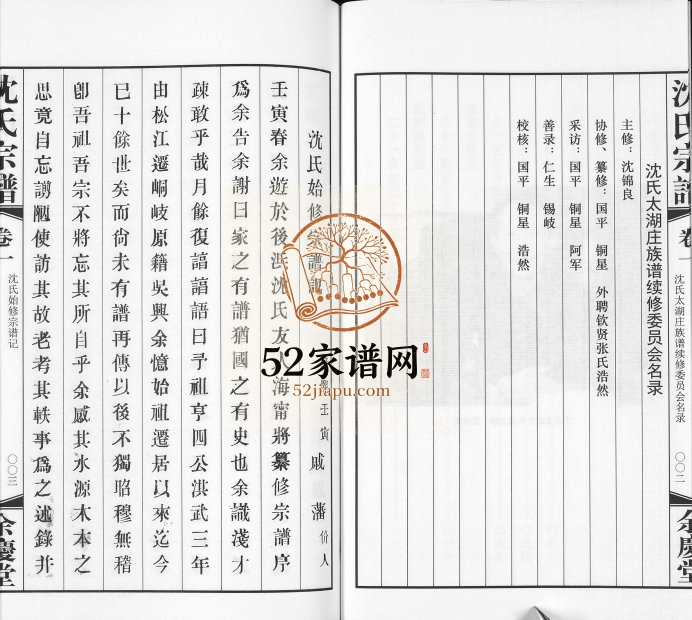 沈氏宗譜
卷一
沈氏太湖庄族谱续修委员会名录
〇〇二
余慶堂
沈氏太湖庄族谱续修委员会名录
主修：沈锦良
协修、纂修：国平 铜星 外聘钦贤张氏浩然
采访：国平 铜星 阿军
善录：仁生 锡岐
校核：国平 铜星 浩然
沈氏始修宗譜記
壬寅 戚藩价人
壬寅春余遊於後 沈氏友人海甯將纂修宗譜序
爲余告余謝曰家之有譜猶國之有史也余識淺才
疎敢乎哉月餘復諄諄語曰予祖亨四公洪武三年
由松江遷峒岐原籍吳興余憶始祖遷居以來迄今
已十餘世矣而尚未有譜再傳以後不獨昭穆無稽
卽吾祖吾宗不將忘其所自乎余感其水源木本之
思竟自忘謭陋使訪其故老考其軼事爲之述錄并
沈氏宗譜
卷一
沈氏始修宗谱记
〇〇三
余慶堂
52家谱网
52jiapu.com